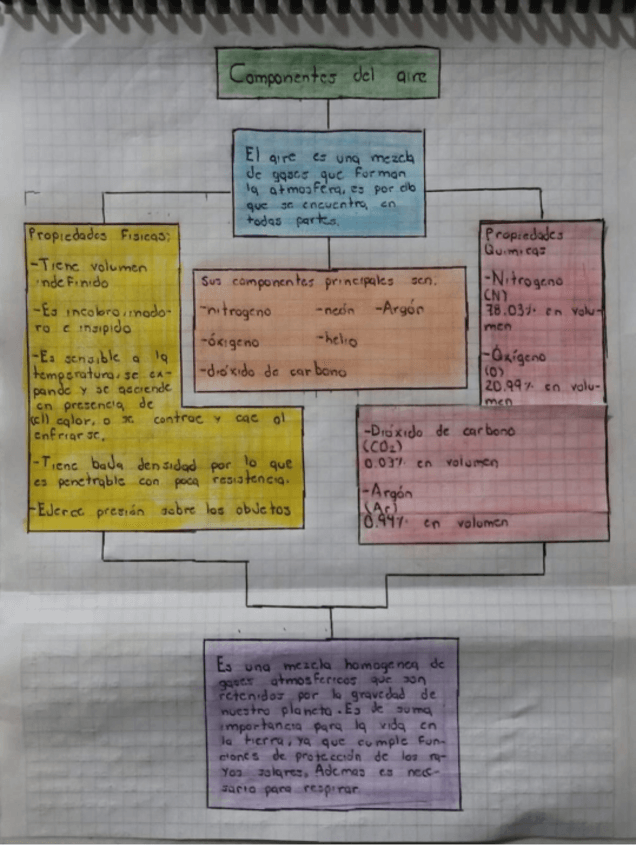 Componentes del aire
El aire es una mezcla
de gases que forman
la atmosfera, es por ello
que se encuentra en
todas partes.
Propiedades Fisicas:
-Tiene volumen
indefinido
-Es incoloro, inodo-
ro e insipido
-Es sensible a la
temperatura, se ex-
pande y se asciende
en presencia de
(el) calor, o se contrae y cae al
enfriarse.
-Tiene baja densidad por lo que
es penetrable con poca resistencia.
-Ejerce presión sobre los objetos
Sus componentes principales son:
-nitrogeno -neón -Argón
-óxigeno -helio
-dióxido de carbono
Propiedades
Quimicas
-Nitrogeno
(N)
78.03% en volu-
men
-Óxígeno
(O)
20.99% en volu-
men
-Dióxido de carbono
(CO₂)
0.03% en volumen
-Argón
(Ar)
0.94% en volumen
Es una mezcla homogenea de
gases atmosfericos que son
retenidos por la gravedad de
nuestro planeta. Es de suma
importancia para la vida en
la tierra, ya que cumple fun-
ciones de protección de los ra-
yos solares, Ademas es nece-
sario para respirar